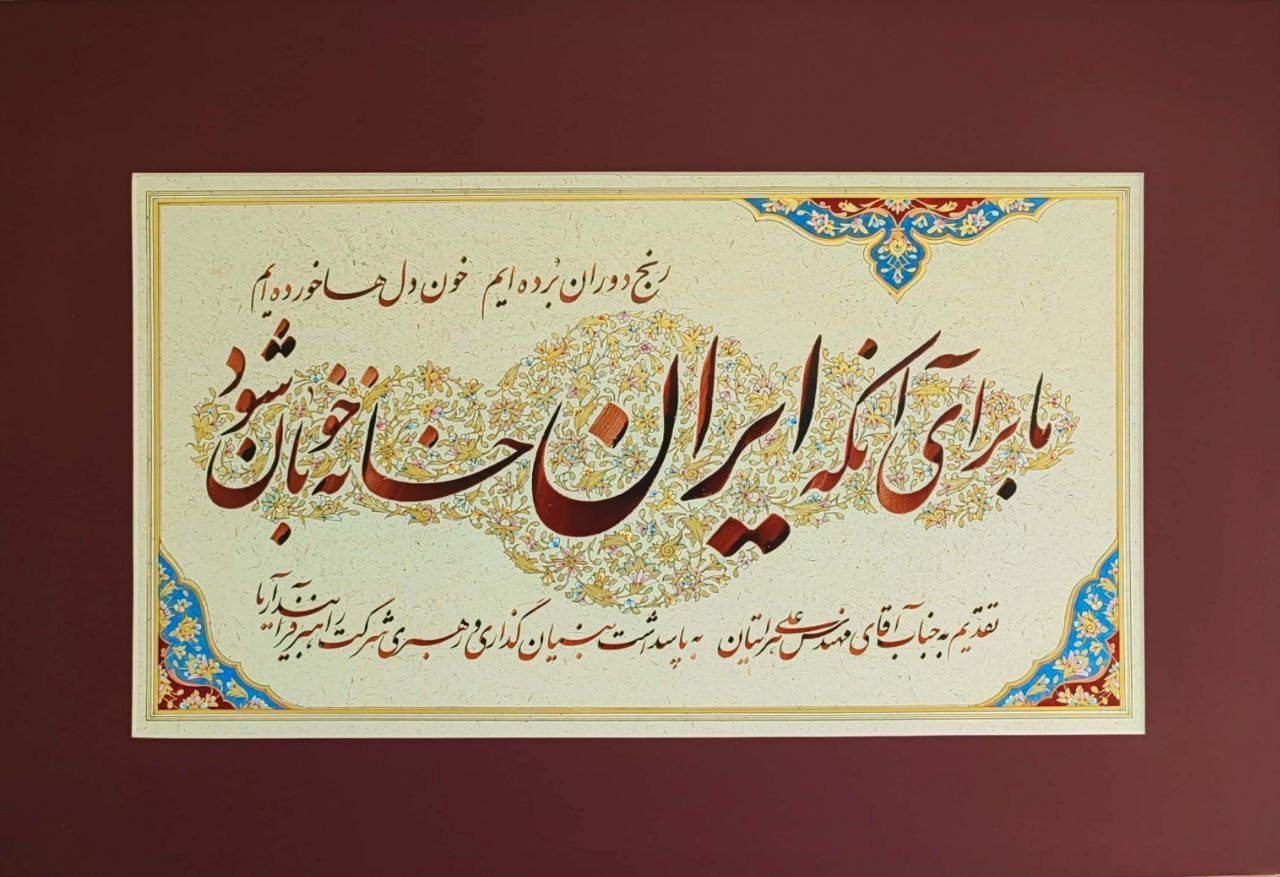 رنج دوران بُرده ایم خون دل ها خورده ایم
ما برای آنکه ایران خانه خوبان شود
تقدیم به جناب آقای مهندس علی به پاسداشت بنیان گذاری و رهبری شرکت راهبر فرآیند آریا